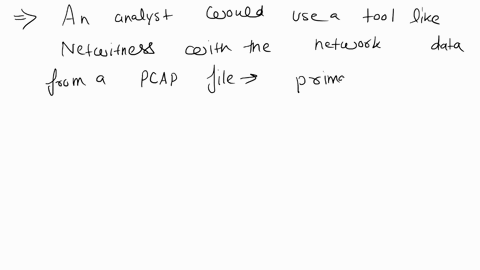 ⇒ An analyst would use a tool like
Netwitness with the network data
from a PCAP file → prima